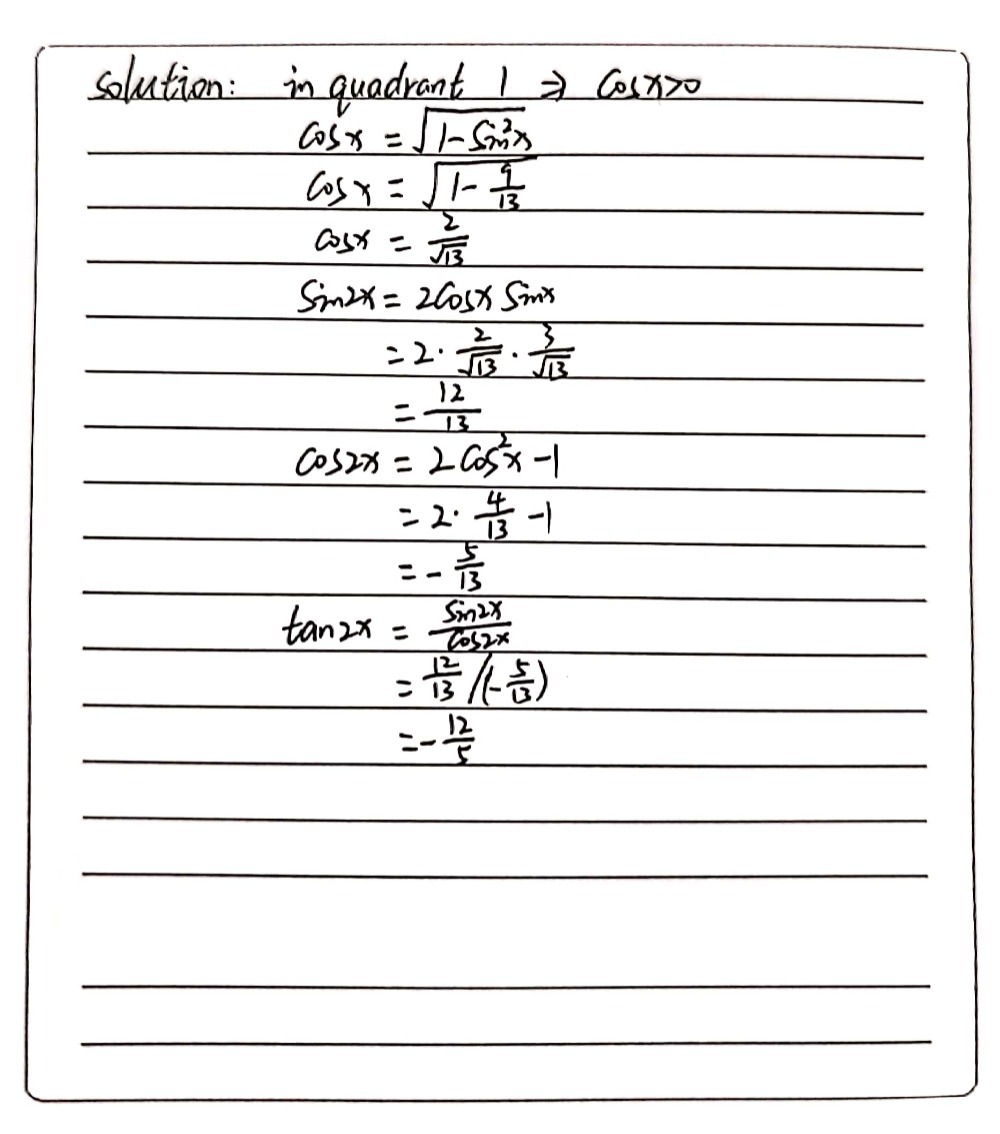 solution: in quadrant 1 ⇒ cosx>0
cosx = √(1-sin²x)
cosx = √(1-9/13)
cosx = 2/√13
sin2x = 2cosx sinx
= 2·2/√13·3/√13
= 12/13
cos2x = 2cos²x-1
= 2·4/13-1
= -5/13
tan2x = sin2x/cos2x
= 12/13/(-5/13)
= -12/5